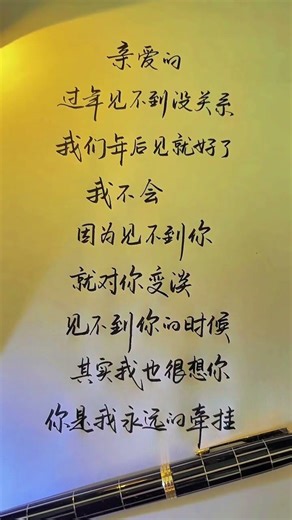 亲爱的
过年见不到没关系
我们年后见就好了
我不会
因为见不到你
就对你变淡
见不到你的时候
其实我也很想你
你是我永远的牵挂